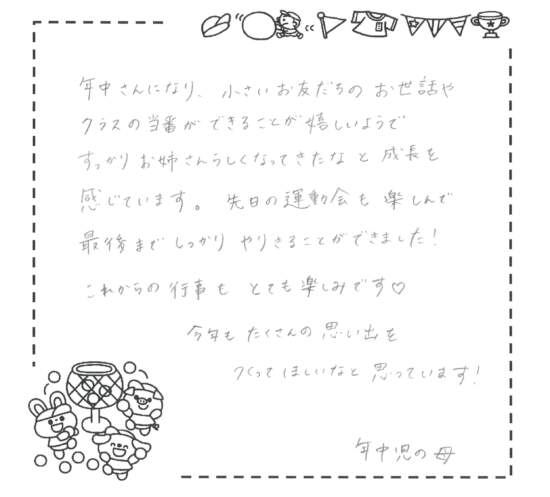 年中さんになり、小さいお友だちのお世話や
クラスの当番ができることが嬉しいようで
すっかりお姉さんらしくなってきたなと成長を
感じています。先日の運動会も楽しんで
最後までしっかりやりきることができました！
これからの行事もとても楽しみです♡
今年もたくさんの思い出を
つくってほしいなと思っています！
年中児の母